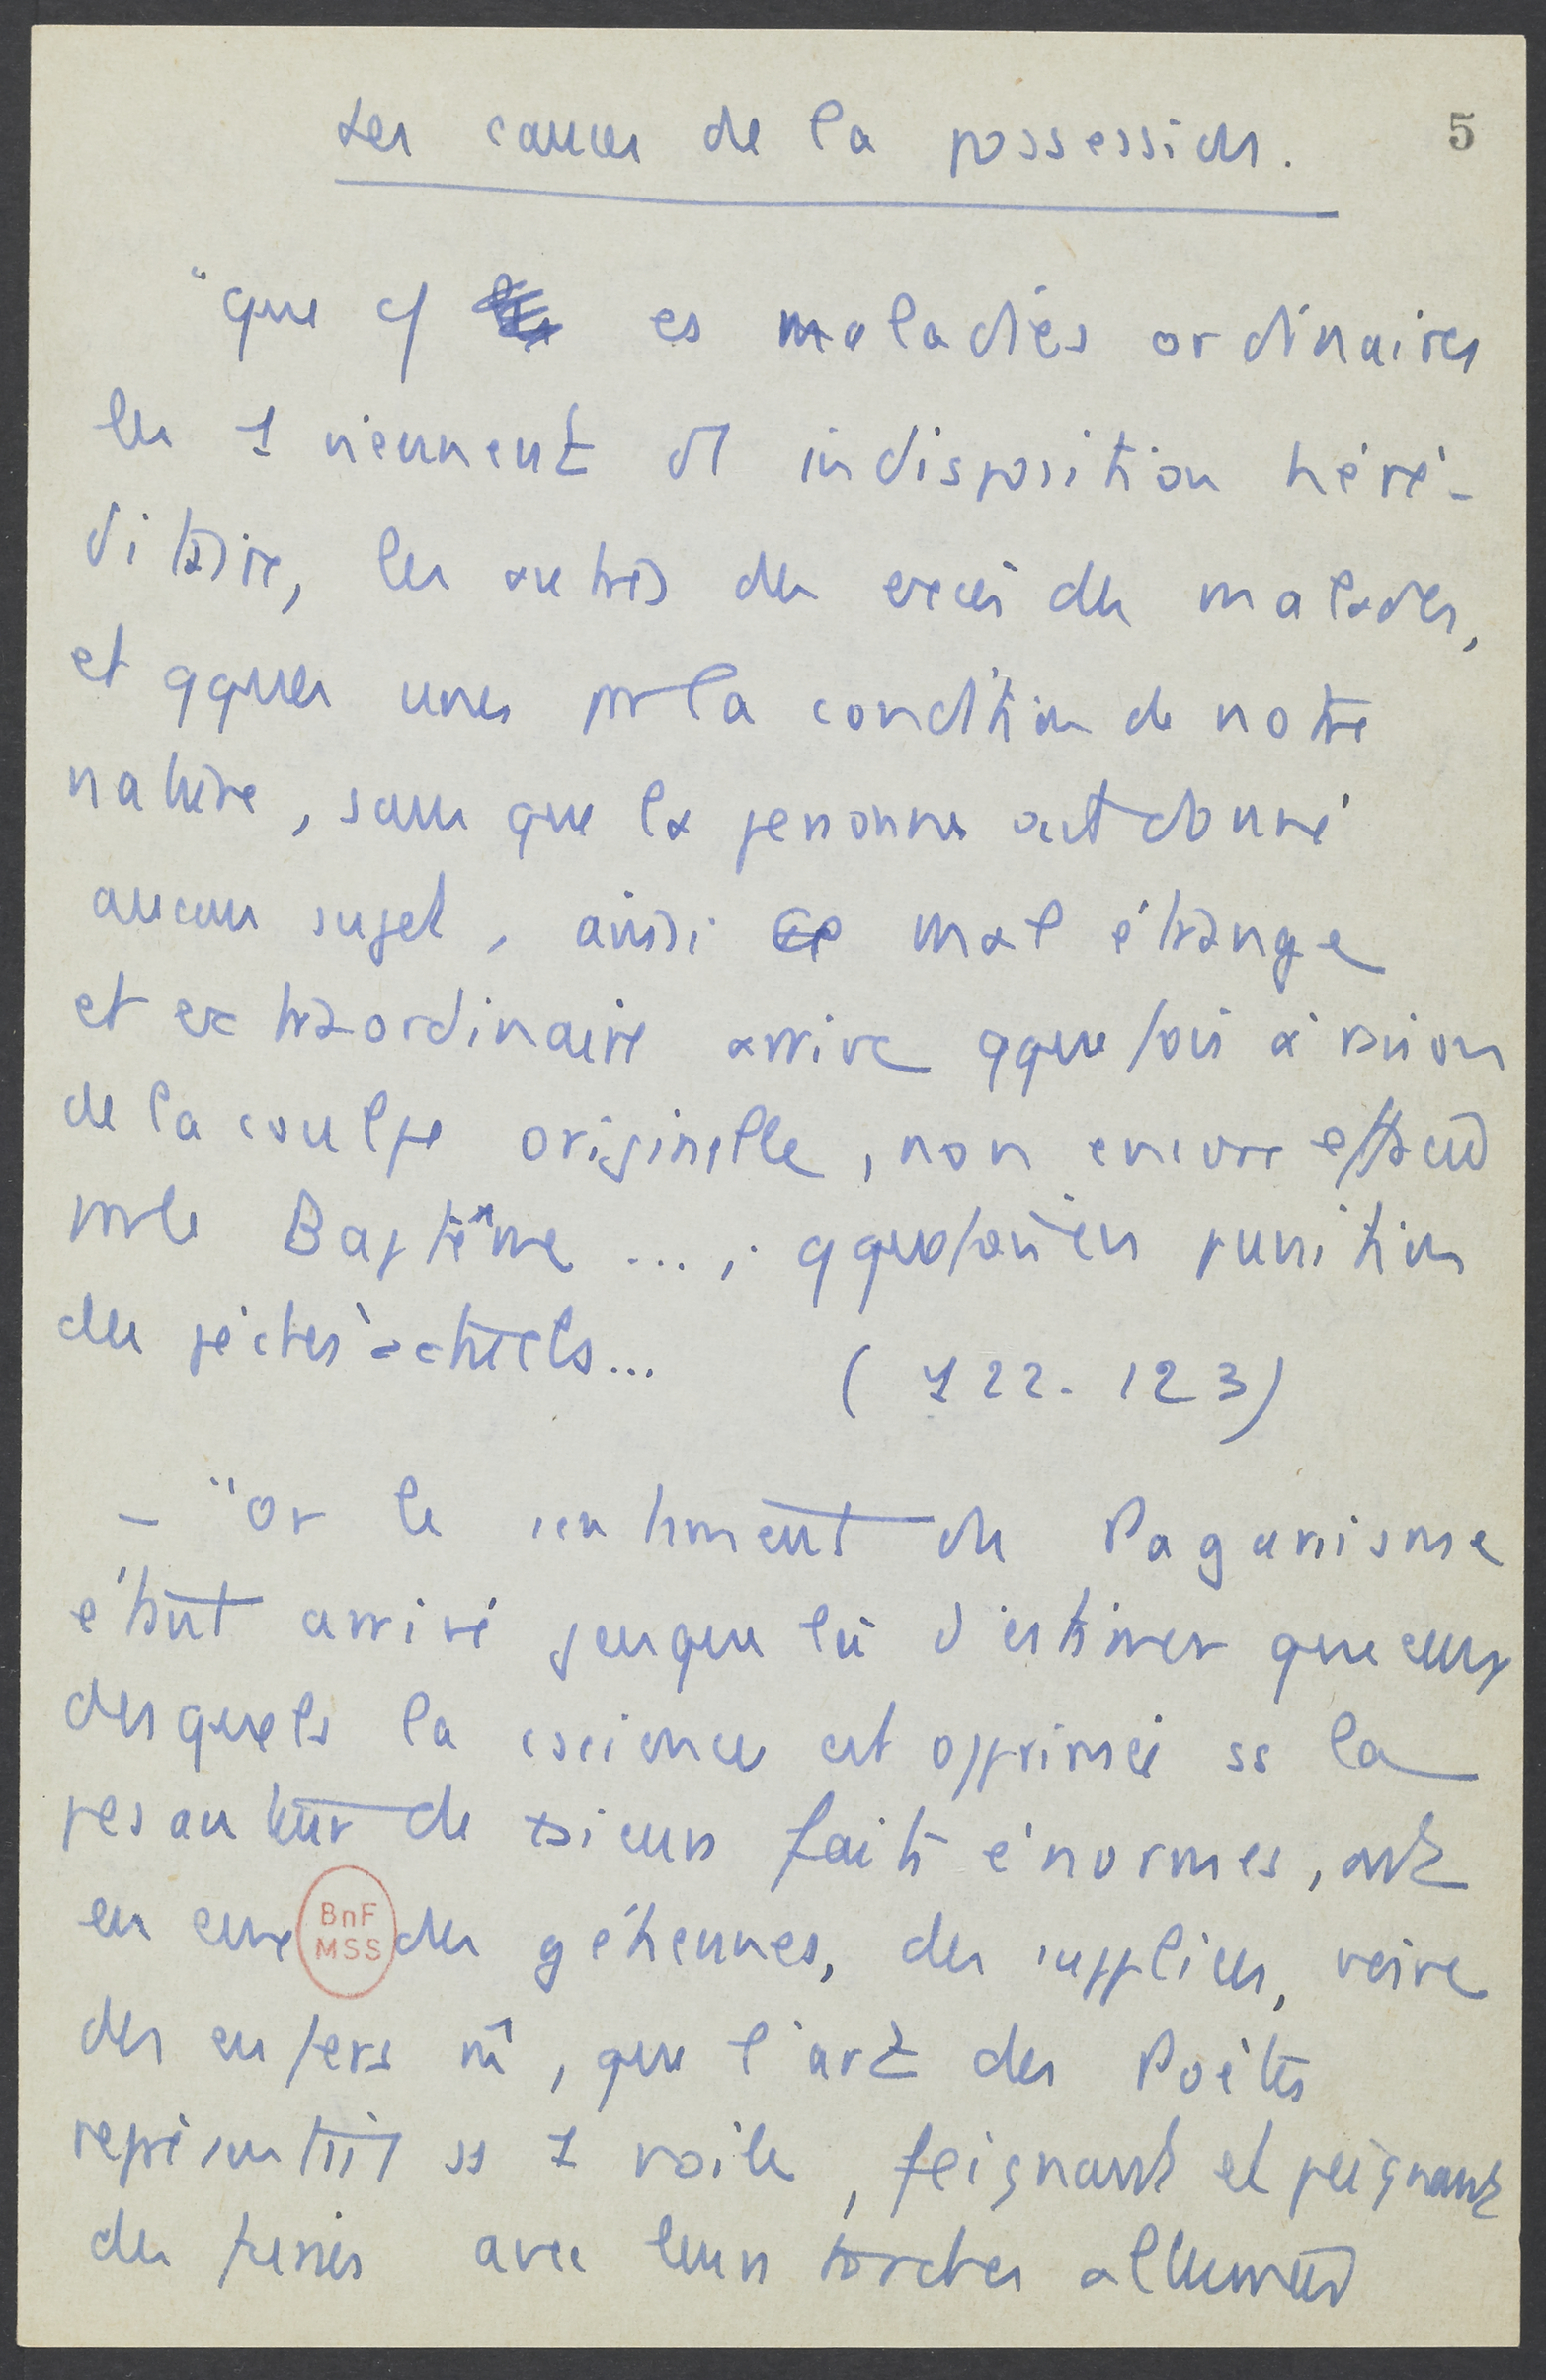 Les causes de la possession.
5
"que cf es maladies ordinaires
les 1 viennent d'1 indisposition héré-
ditaire, les autres des excès des malades,
et qques unes pr la condition de notre
nature, sans que la personne ait donné
aucun sujet, ainsi ce mal étrange
et extraordinaire arrive qquefois à raison
de la coulpe originelle, non encore effacée
pr le Baptême ..., qquefois en punition
des péchés actuels...
(122. 123)
- "or le sentiment du Paganisme
était arrivé jusque là d'estimer que ceux
desquels la cscience est opprimée ss la
pesanteur de plsieurs faits énormes, ont
en eux des géhennes, des supplices, voire
BnF
MSS
des enfers m̂, que l'art des Poètes
représentait ss 1 voile, feignant et peignant
des furies avec leurs torches allumées